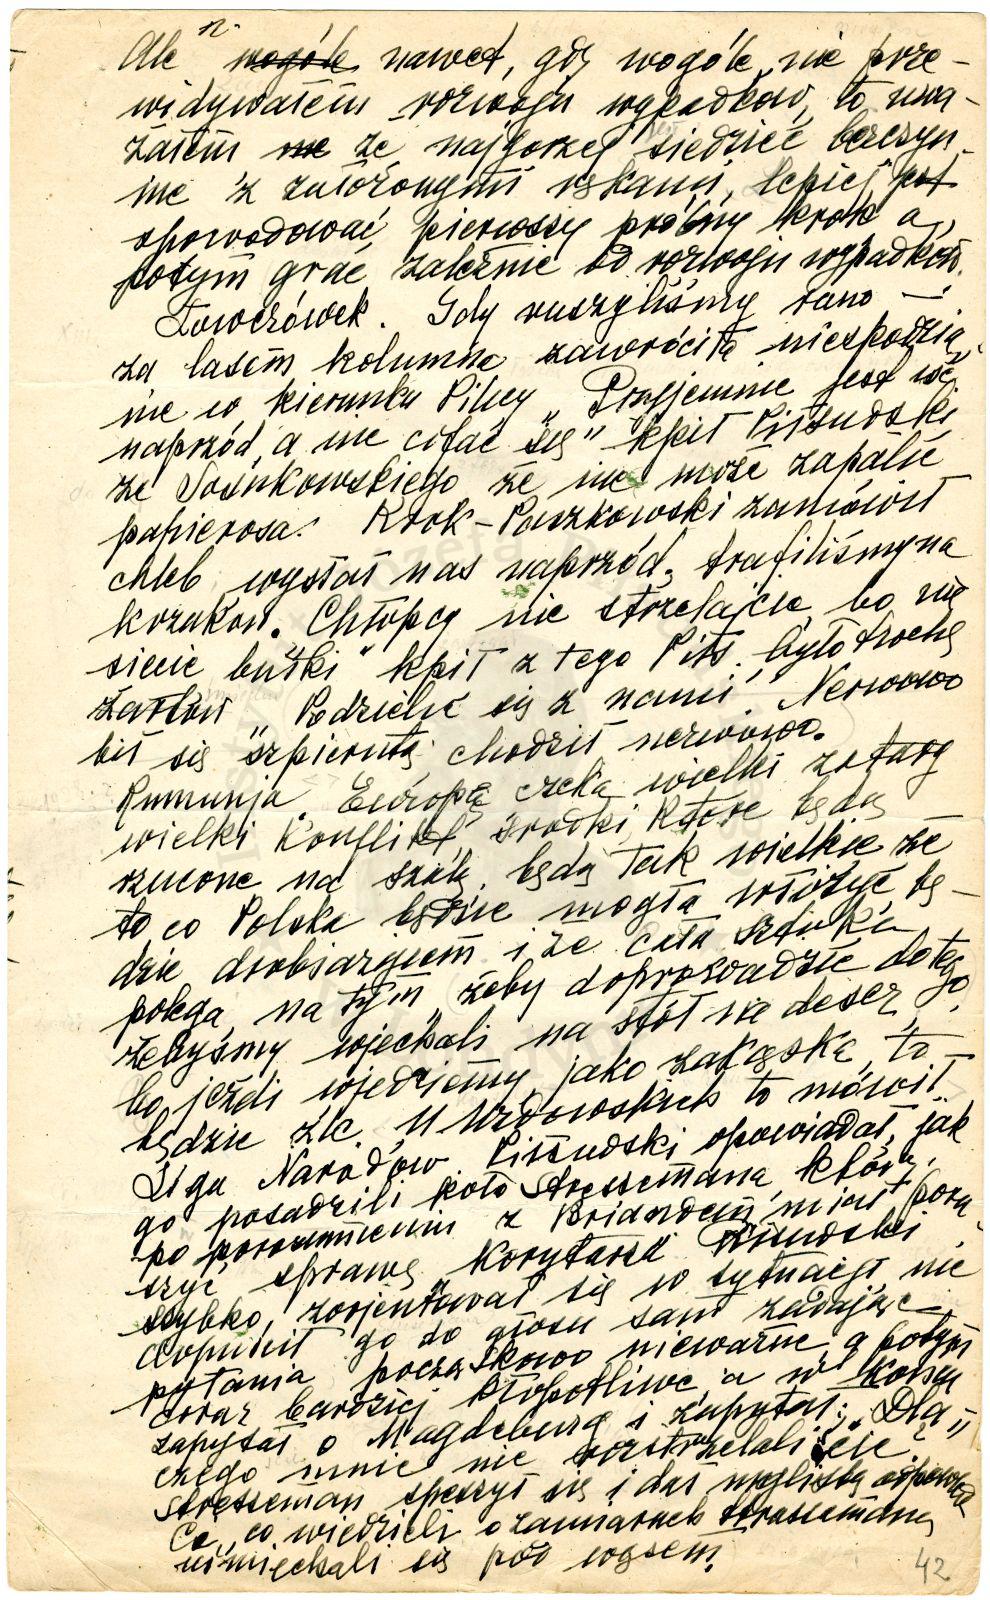 Ale wogóle nawet, gdy wogóle nie prze-
widywałem rozwoju wypadków, to uwa-
żałem że najgorzej siedzieć bezczyn-
nie z założonymi rękami, lepiej
spowodować pierwszy próbny krok a
potym grać zależnie od rozwoju wypadków.
Łowczówek. Gdy ruszyliśmy rano —
za lasem kolumna zawróciła niespodzia-
nie w kierunku Pilicy „Przyjemnie jest iść
naprzód, a nie cofać się" kpił Piłsudski
ze Sosnkowskiego że nie może zapalić
papierosa. Krok-Paszkowski zamówił
chleb wysłał nas naprzód, trafiliśmy na
kozaków. Chłopcy nie strzelajcie bo nie
sicie bułki" kpił z tego Piłs. było trochę
żartów „Podzielić się z nami". Nerwowo
bił się szpicrutą chodził nerwowo.
Rumunja „Europę czeka wielki zatarg
wielki konflikt, środki, które będą
rzucone na szalę, będą tak wielkie że
to co Polska będzie mogła włożyć bę-
dzie drobiazgiem i że cała sztuka
polega na tym, żeby doprowadzić do tego
żebyśmy wjechali na stół na deser,
bo jeżeli wjedziemy jako zakąska, to
będzie źle. U Wżdowskich to mówił.
Liga Narodów. Piłsudski opowiadał, jak
go posadzili koło Stressemana, który
po porozumieniu z Briandem miał poru-
szyć sprawę Korytarza Piłsudski
szybko zorjentował się w sytuacji, nie
dopuścił go do głosu sam zadając
pytania początkowo nieważne a potym
coraz bardziej kłopotliwe, a w końcu
zapytał o Magdeburg i zapytał: „Dla-
czego mnie nie rozstrzelaliście.
Stresseman speszył się i dał mglistą odpowiedź
Ci, co wiedzieli o zamiarach Stressemana
uśmiechali się pod wąsem.
42